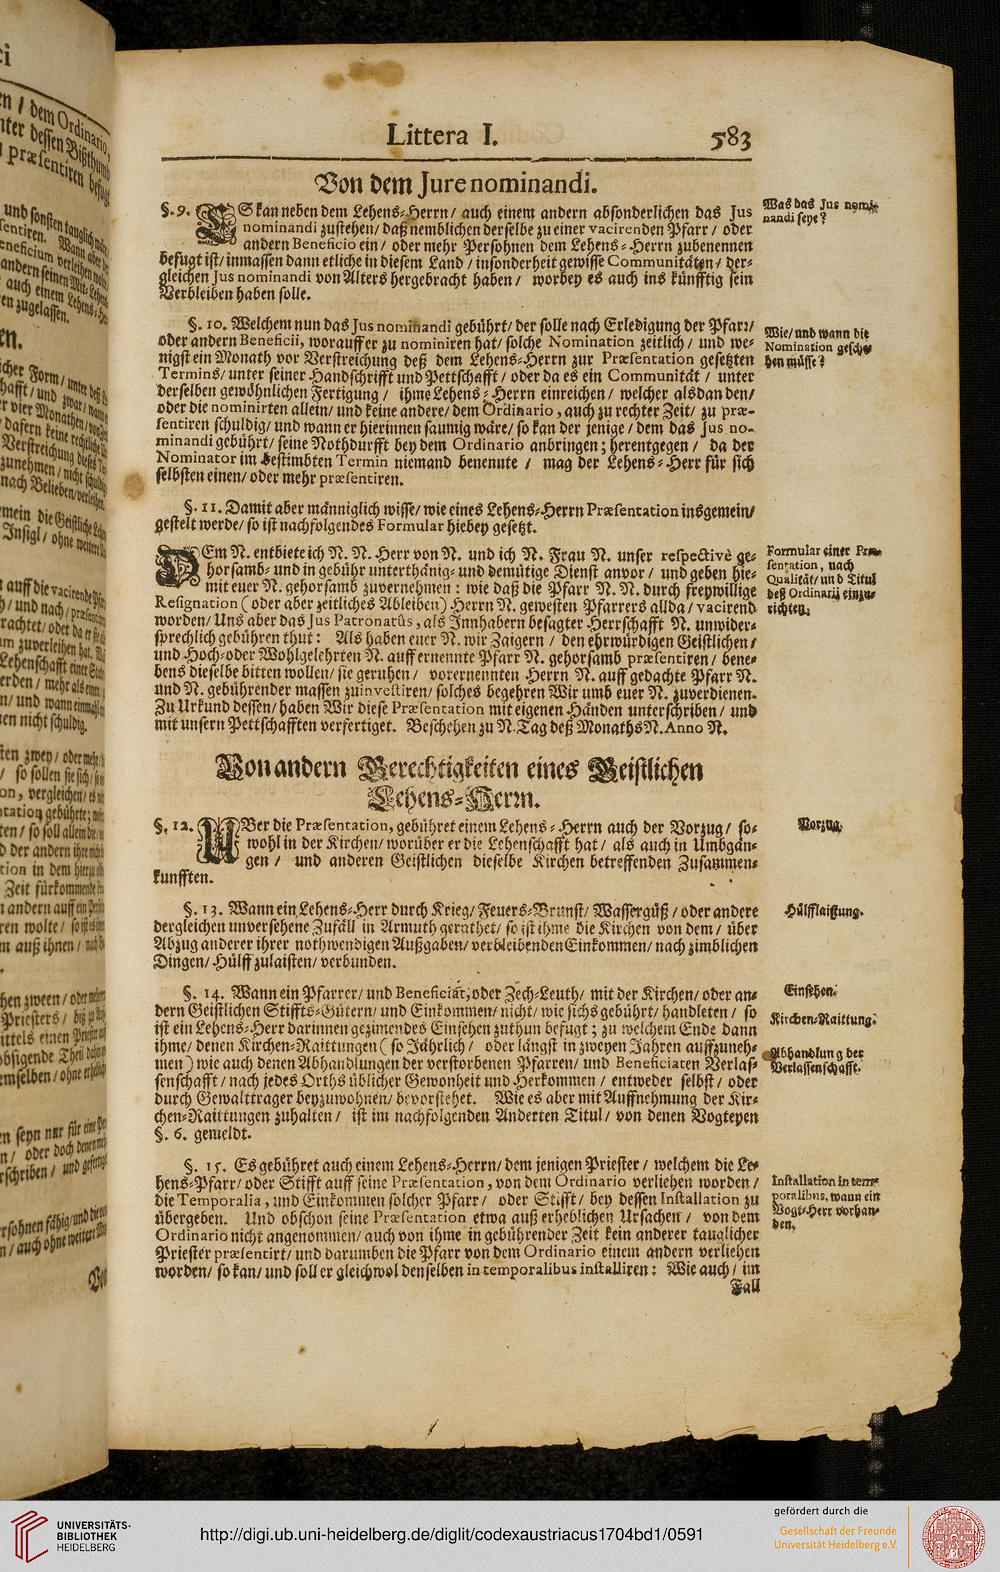 Littera I. 583
Von dem Jure nominandi.
§. 9. ES kan neben dem Lehens-Herrn / auch einem andern absonderlichen das Jus
nominandi zustehen / daß nemblichen derselbe zu einer vacirenden Pfarr / oder
andern Beneficio ein / oder mehr Persohnen dem Lehens-Herrn zubenennen
befugt ist / inmassen dann etliche in diesem Land / insonderheit gewisse Communitäten / der-
gleichen Jus nominandi von Alters hergebracht haben / worbey es auch ins künfftig sein
Verbleiben haben solle.
Was das Jus nomi-
nandi seye?
§. 10. Welchem nun das Jus nominandi gebührt / der solle nach Erledigung der Pfarr /
oder andern Beneficii, worauff er zu nominiren hat / solche Nomination zeitlich / und we-
nigst ein Monath vor Verstreichung deß dem Lehens-Herrn zur Præsentation gesetzten
Termins / unter seiner Handschrifft und Pettschafft / oder da es ein Communität / unter
derselben gewöhnlichen Fertigung / ihme Lehens-Herrn einreichen / welcher alsdan den /
oder die nominirten allein / und keine andere / dem Ordinario, auch zu rechter Zeit / zu præ-
sentiren schuldig / und wann er hierinnen saumig wäre / so kan der jenige / dem das Jus no-
minandi gebührt / seine Nothdurfft bey dem Ordinario anbringen; herentgegen / da der
Nominator im bestimbten Termin niemand benennte / mag der Lehens-Herr für sich
selbsten einen / oder mehr præsentiren.
Wie / und wann die
Nomination gesche-
hen müsse?
§. 11. Damit aber männiglich wisse / wie eines Lehens-Herrn Præsentation insgemein /
gestelt werde / so ist nachfolgendes Formular hiebey gesetzt.
DEm N. entbiete ich N. N. Herr von N. und ich N. Frau N. unser respectivè ge-
horsamb- und in gebühr unterthänig- und demütige Dienst anvor / und geben hie-
mit euer N. gehorsamb zuvernehmen: wie daß die Pfarr N. N. durch freywillige
Resignation (oder aber zeitliches Ableiben) Herrn N. gewesten Pfarrers allda / vacirend
worden / Uns aber das Jus Patronatûs, als Innhabern besagter Herrschafft N. unwider-
sprechlich gebühren thut: Als haben euer N. wir Zaigern / den ehrwürdigen Geistlichen /
und Hoch- oder Wohlgelehrten N. auff ernennte Pfarr N. gehorsamb præsentiren / bene-
bens dieselbe bitten wollen / sie geruhen / vorernennten Herrn N. auff gedachte Pfarr N.
und N. gebührender massen zuinvestiren / solches begehren Wir umb euer N. zuverdienen.
Zu Urkund dessen / haben Wir diese Præsentation mit eigenen Händen unterschriben / und
mit unsern Pettschafften verfertiget. Beschehen zu N. Tag deß Monaths N. Anno N.
Formular einer Præ-
sentation, nach
Qualität / und Titul
deß Ordinarii einzu-
richten.
Von andern Gerechtigkeiten eines Geistlichen
Lehens-Herrn.
§. 12. UBer die Præsentation, gebühret einem Lehens-Herrn auch der Vorzug / so-
wohl in der Kirchen / worüber er die Lehenschafft hat / als auch in Umbgän-
gen / und anderen Geistlichen dieselbe Kirchen betreffenden Zusammen-
kunfften.
Vorzug.
§. 13. Wann ein Lehens-Herr durch Krieg / Feuers-Brunst / Wassergüß / oder andere
dergleichen unversehene Zufäll in Armuth gerathet / so ist ihme die Kirchen von dem / über
Abzug anderer ihrer nothwendigen Außgaben / verbleibenden Einkommen / nach zimblichen
Dingen / Hülff zulaisten / verbunden.
Hülfflaistung.
§. 14. Wann ein Pfarrer / und Beneficiat, oder Zech-Leuth / mit der Kirchen / oder an-
dern Geistlichen Stiffts-Gütern / und Einkommen / nicht / wie sichs gebührt / handleten / so
ist ein Lehens-Herr darinnen gezimendes Einsehen zuthun befugt; zu welchem Ende dann
ihme / denen Kirchen-Raittungen (so Jährlich / oder längst in zweyen Jahren auffzuneh-
men) wie auch denen Abhandlungen der verstorbenen Pfarren / und Beneficiaten Verlas-
senschafft / nach jedes Orths üblicher Gewonheit und Herkommen / entweder selbst / oder
durch Gewalttrager beyzuwohnen / bevorstehet. Wie es aber mit Auffnehmung der Kir-
chen-Raittungen zuhalten / ist im nachfolgenden Anderten Titul / von denen Vogteyen
§. 6. gemeldt.
Einsehen.
Kirchen-Raittung.
Abhandlung der
Verlassenschafft.
§. 15. Es gebühret auch einem Lehens-Herrn / dem jenigen Priester / welchem die Le-
hens-Pfarr / oder Stifft auff seine Præsentation, von dem Ordinario verliehen worden /
die Temporalia, und Einkommen solcher Pfarr / oder Stifft / bey dessen Installation zu
übergeben. Und obschon seine Præsentation etwa auß erheblichen Ursachen / von dem
Ordinario nicht angenommen / auch von ihme in gebührender Zeit kein anderer tauglicher
Priester præsentirt / und darumben die Pfarr von dem Ordinario einem andern verliehen
worden / so kan / und soll er gleichwol denselben in temporalibus installiren: Wie auch / im
Fall
Installation in tem-
poralibus, wann ein
Vogt-Herr vorhan-
den.
UNIVERSITÄTS-
BIBLIOTHEK
HEIDELBERG
http://digi.ub.uni-heidelberg.de/diglit/codexaustriacus1704bd1/0591
gefördert durch die
Gesellschaft der Freunde
Universität Heidelberg e.V.